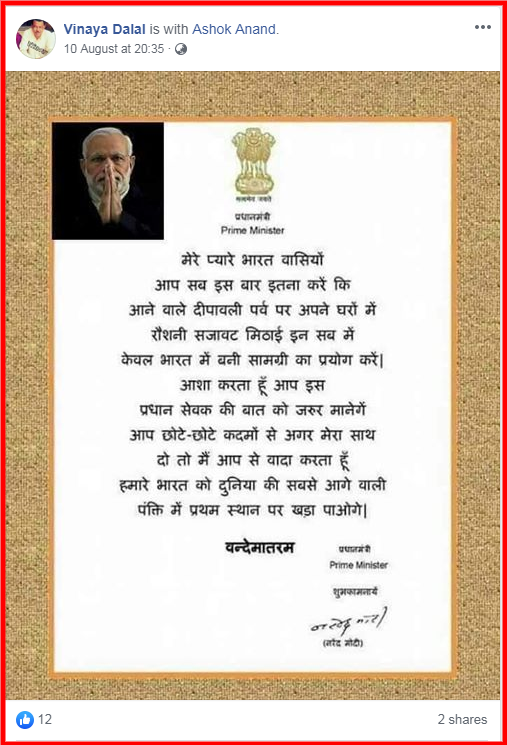 Vinaya Dalal is with Ashok Anand.
10 August at 20:35 ·
सत्यमेव जयते
प्रधानमंत्री
Prime Minister
मेरे प्यारे भारत वासियों
आप सब इस बार इतना करें कि
आने वाले दीपावली पर्व पर अपने घरों में
रौशनी सजावट मिठाई इन सब में
केवल भारत में बनी सामग्री का प्रयोग करें|
आशा करता हूँ आप इस
प्रधान सेवक की बात को जरुर मानेगें
आप छोटे-छोटे कदमों से अगर मेरा साथ
दो तो मैं आप से वादा करता हूँ
हमारे भारत को दुनिया की सबसे आगे वाली
पंक्ति में प्रथम स्थान पर खड़ा पाओगे|
वन्देमातरम
प्रधानमंत्री
Prime Minister
शुभकामनायें
नरेन्द्र मोदी
(नरेंद्र मोदी)
12
2 shares